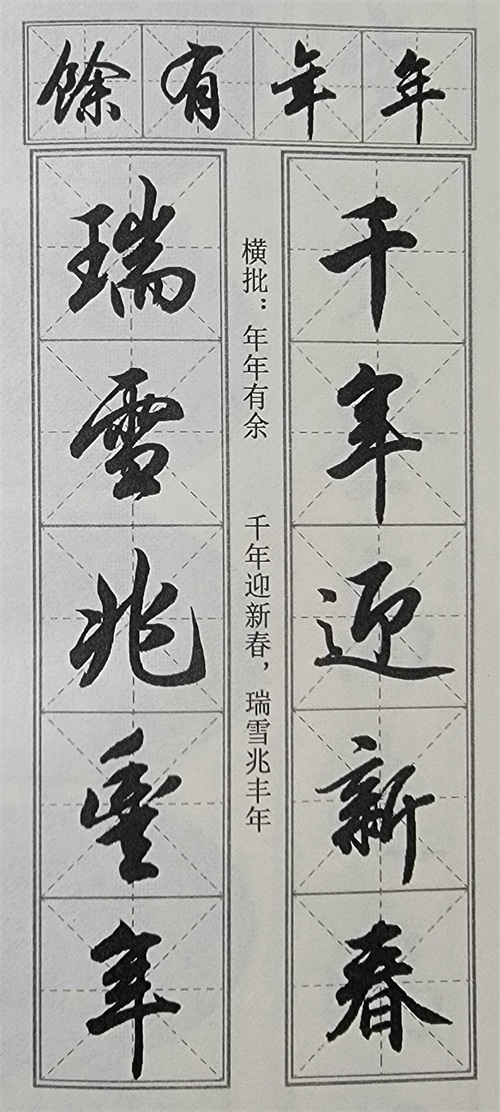 年年有餘
千年迎新春
横批：年年有余
千年迎新春，瑞雪兆丰年
瑞雪兆豐年